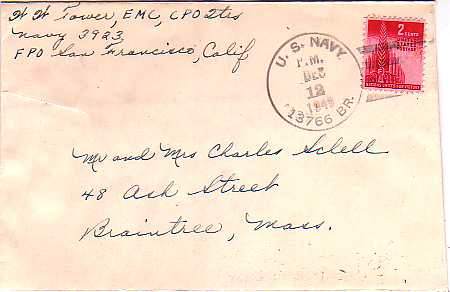 W W Tower, EMC, CPO Qtrs
Navy 3923,
FPO San Francisco, Calif.
U. S. NAVY
P.M.
DEC
12
1949
13766 BR.
2 CENTS
UNITED STATES
Mr and Mrs Charles Schell
48 Ash Street
Braintree, Mass.